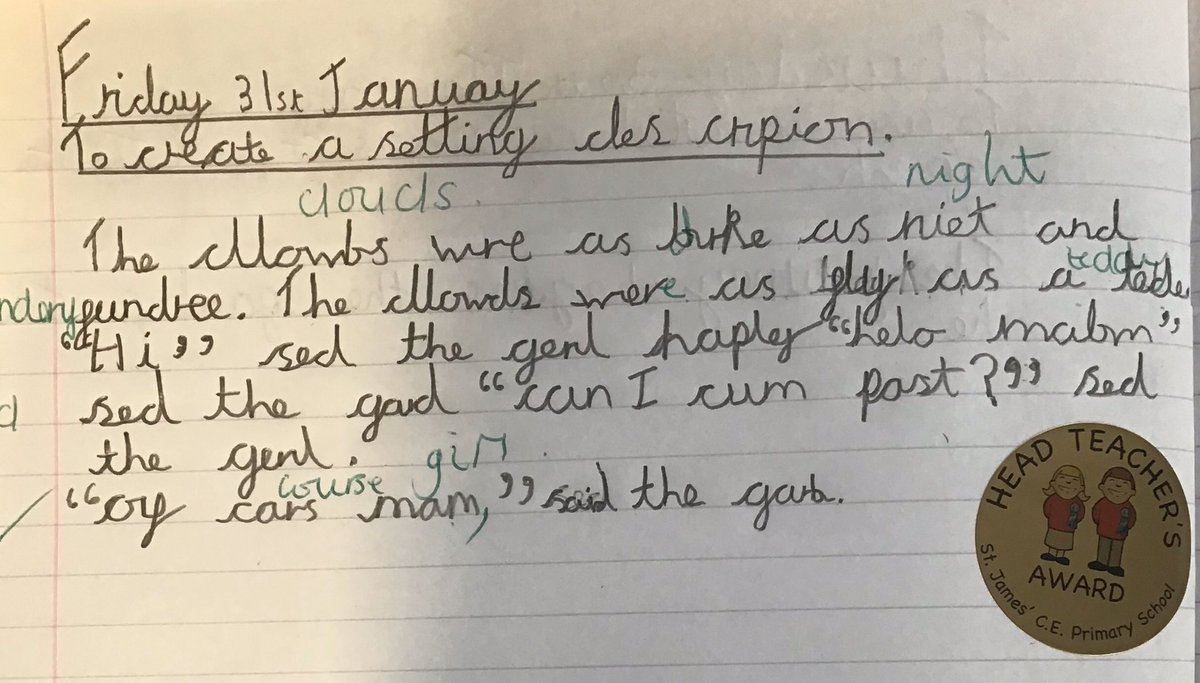 Friday 31st January
To create a setting descripion.
clouds. night
The cllowbs wre as as niet and
teddy
ndary pundree. The cllowds were as as a tedde
"Hi" sed the genl haply "helo mabm"
d sed the gard "can I cum past?" sed
the genl. girl.
course
"oy cars mam," said the garb.
HEAD TEACHER'S
AWARD
St. James' C.E. Primary School